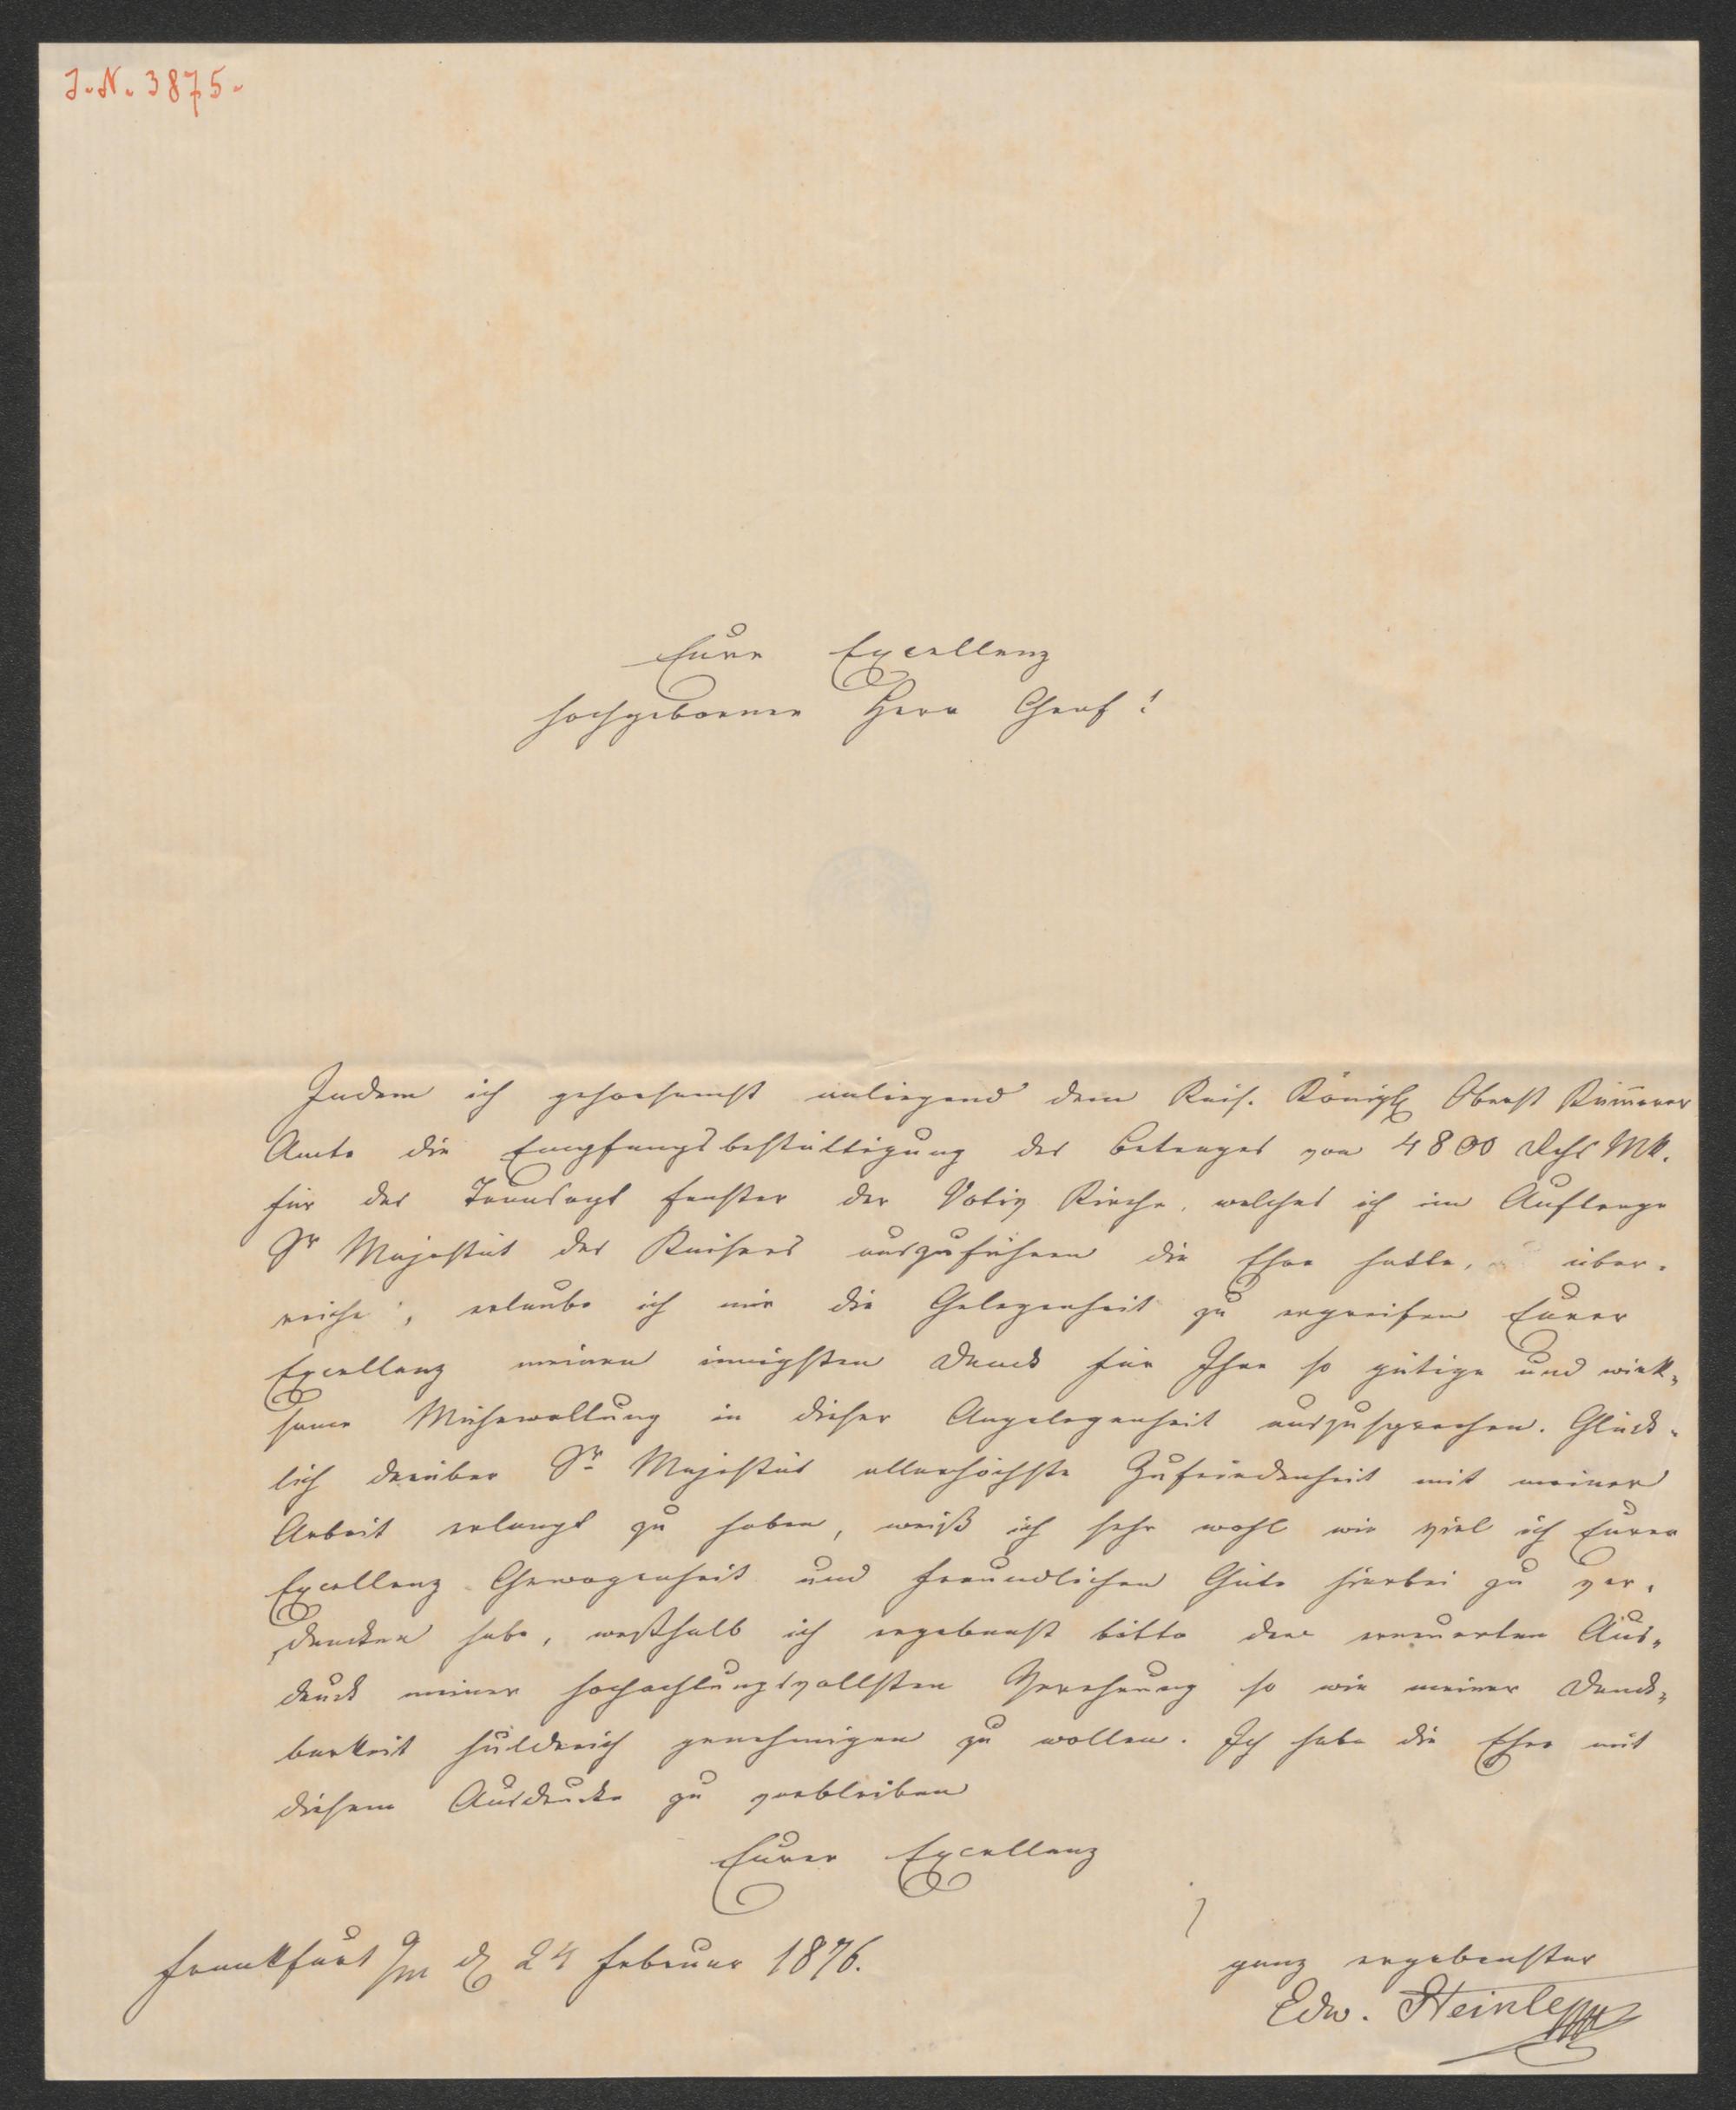 J.N. 3875.
Eure Excellenz
hochgeborner Herr Graf!
Indem ich gehorsamst anliegend dem Kais. Königl. Oberst Kämmerer
Amte die Empfangsbestättigung des Betrages von 4800 Rchs Mk.
für das Transept Fenster der Votiv Kirche, welches ich im Auftrage
Sr Majestät des Kaisers auszuführen die Ehre hatte, über-
reiche, erlaube ich mir die Gelegenheit zu ergreifen Eurer
Excellenz meinen innigsten Danck für Ihre so gütige und wirk-
same Mühewaltung in dieser Angelegenheit auszusprechen. Glück-
lich darüber Sr Majestät allerhöchste Zufriedenheit mit meiner
Arbeit erlangt zu haben, weiß ich sehr wohl wie viel ich Eurer
Excellenz Gewogenheit und freundlichen Güte hierbei zu ver-
dancken habe, weßhalb ich ergebenst bitte den erneuerten Aus-
druck meiner hochachtungsvollsten Verehrung so wie meiner Danck-
barkeit huldreich genehmigen zu wollen. Ich habe die Ehre mit
diesem Ausdrucke zu verbleiben
Eurer Excellenz
Frankfurt a/m d 24 Februar 1876.
ganz ergebenster
Edw. Steinle